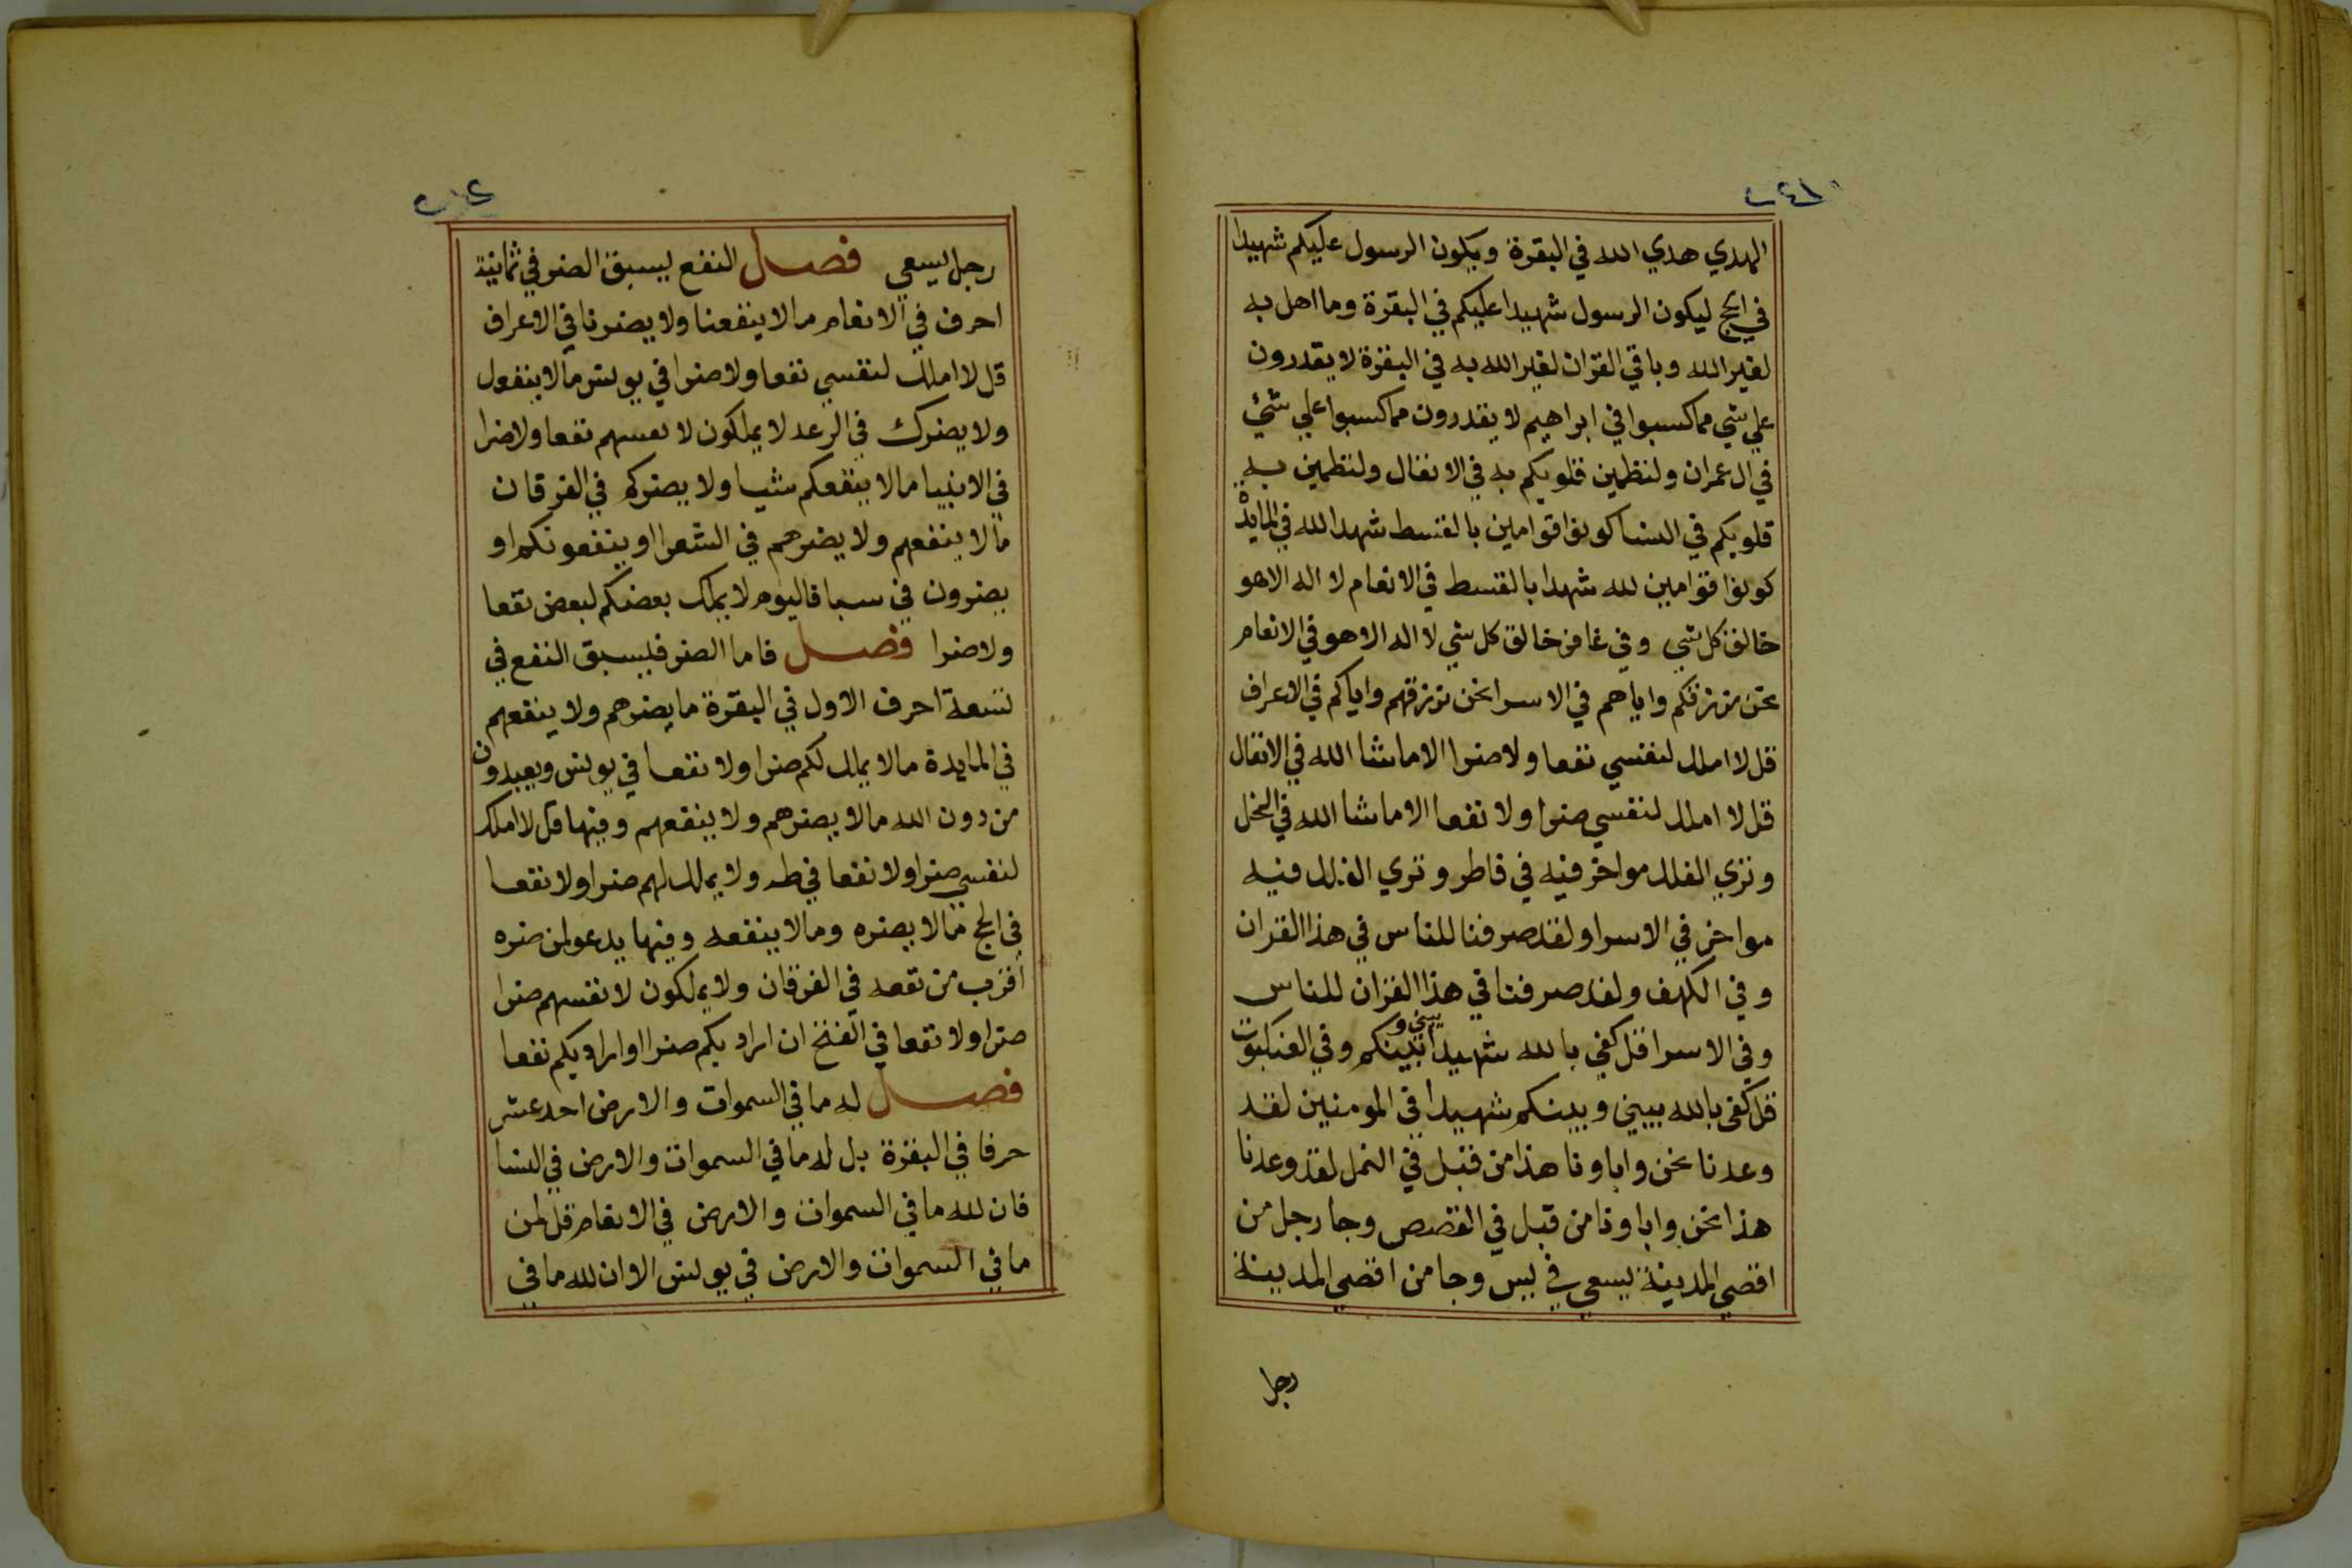 الهدي هدي الله في البقرة ويكون الرسول عليكم شهيدا
في الحج ليكون الرسول شهيدا عليكم في البقرة وما اهل به
لغير الله وباقي القران لغير الله به في البقرة لا يقدرون
علي شي مما كسبوا في ابراهيم لا يقدرون مما كسبوا علي شئ
في ال عمران ولتطمين قلوبكم به في الانفال ولتطمين به
قلوبكم في النسا كونوا قوامين بالقسط شهدا لله في المايدة
كونوا قوامين لله شهدا بالقسط في الانعام لا اله الا هو
خالق كل شي وفي غافر خالق كل شي لا اله الا هو في الانعام
نحن نرزقكم واياهم في الاسرا نحن نرزقهم واياكم في الاعراف
قل لا املك لنفسي نفعا ولا ضرا الا ما شا الله في الانفال
قل لا املك لنفسي ضرا ولا نفعا الا ما شا الله في النحل
وتري الفلك مواخر فيه في فاطر وتري الفلك فيه
مواخر في الاسرا ولقد صرفنا للناس في هذا القران
وفي الكهف ولقد صرفنا في هذا القران للناس
وفي الاسرا قل كفي بالله شهيدا بيني وبينكم وفي العنكبوت
قل كفي بالله بيني وبينكم شهيدا في المومنين لقد
وعدنا نحن واباونا هذا من قبل في النمل لقد وعدنا
هذا نحن واباونا من قبل في القصص وجا رجل من
اقصي المدينة يسعي في يس وجا من اقصي المدينة
رجل
رجل يسعي فصل النفع يسبق الضر في ثمانية
احرف في الانعام ما لا ينفعنا ولا يضرنا في الاعراف
قل لا املك لنفسي نفعا ولا ضرا في يونس ما لا ينفعك
ولا يضرك في الرعد لا يملكون لانفسهم نفعا ولا ضرا
في الانبيا ما لا ينفعكم شيا ولا يضركم في الفرقان
ما لا ينفعهم ولا يضرهم في الشعرا او ينفعونكم او
يضرون في سبا فاليوم لا يملك بعضكم لبعض نفعا
ولا ضرا فصل فاما الضر فليسبق النفع في
تسعة احرف الاول في البقرة ما يضرهم ولا ينفعهم
في المايدة ما لا يملك لكم ضرا ولا نفعا في يونس ويعبدون
من دون الله ما لا يضرهم ولا ينفعهم وفيها قل لا املك
لنفسي ضرا ولا نفعا في طه ولا يملك لهم ضرا ولا نفعا
في الحج ما لا يضره وما لا ينفعه وفيها يدعو لمن ضره
اقرب من نفعه في الفرقان ولا يملكون لانفسهم ضرا
ضرا ولا نفعا في الفتح ان اراد بكم ضرا او اراد بكم نفعا
فصل له ما في السموات والارض احد عشر
حرفا في البقرة بل له ما في السموات والارض في النسا
فان لله ما في السموات والارض في الانعام قل لمن
ما في السموات والارض في يونس الا ان لله ما في